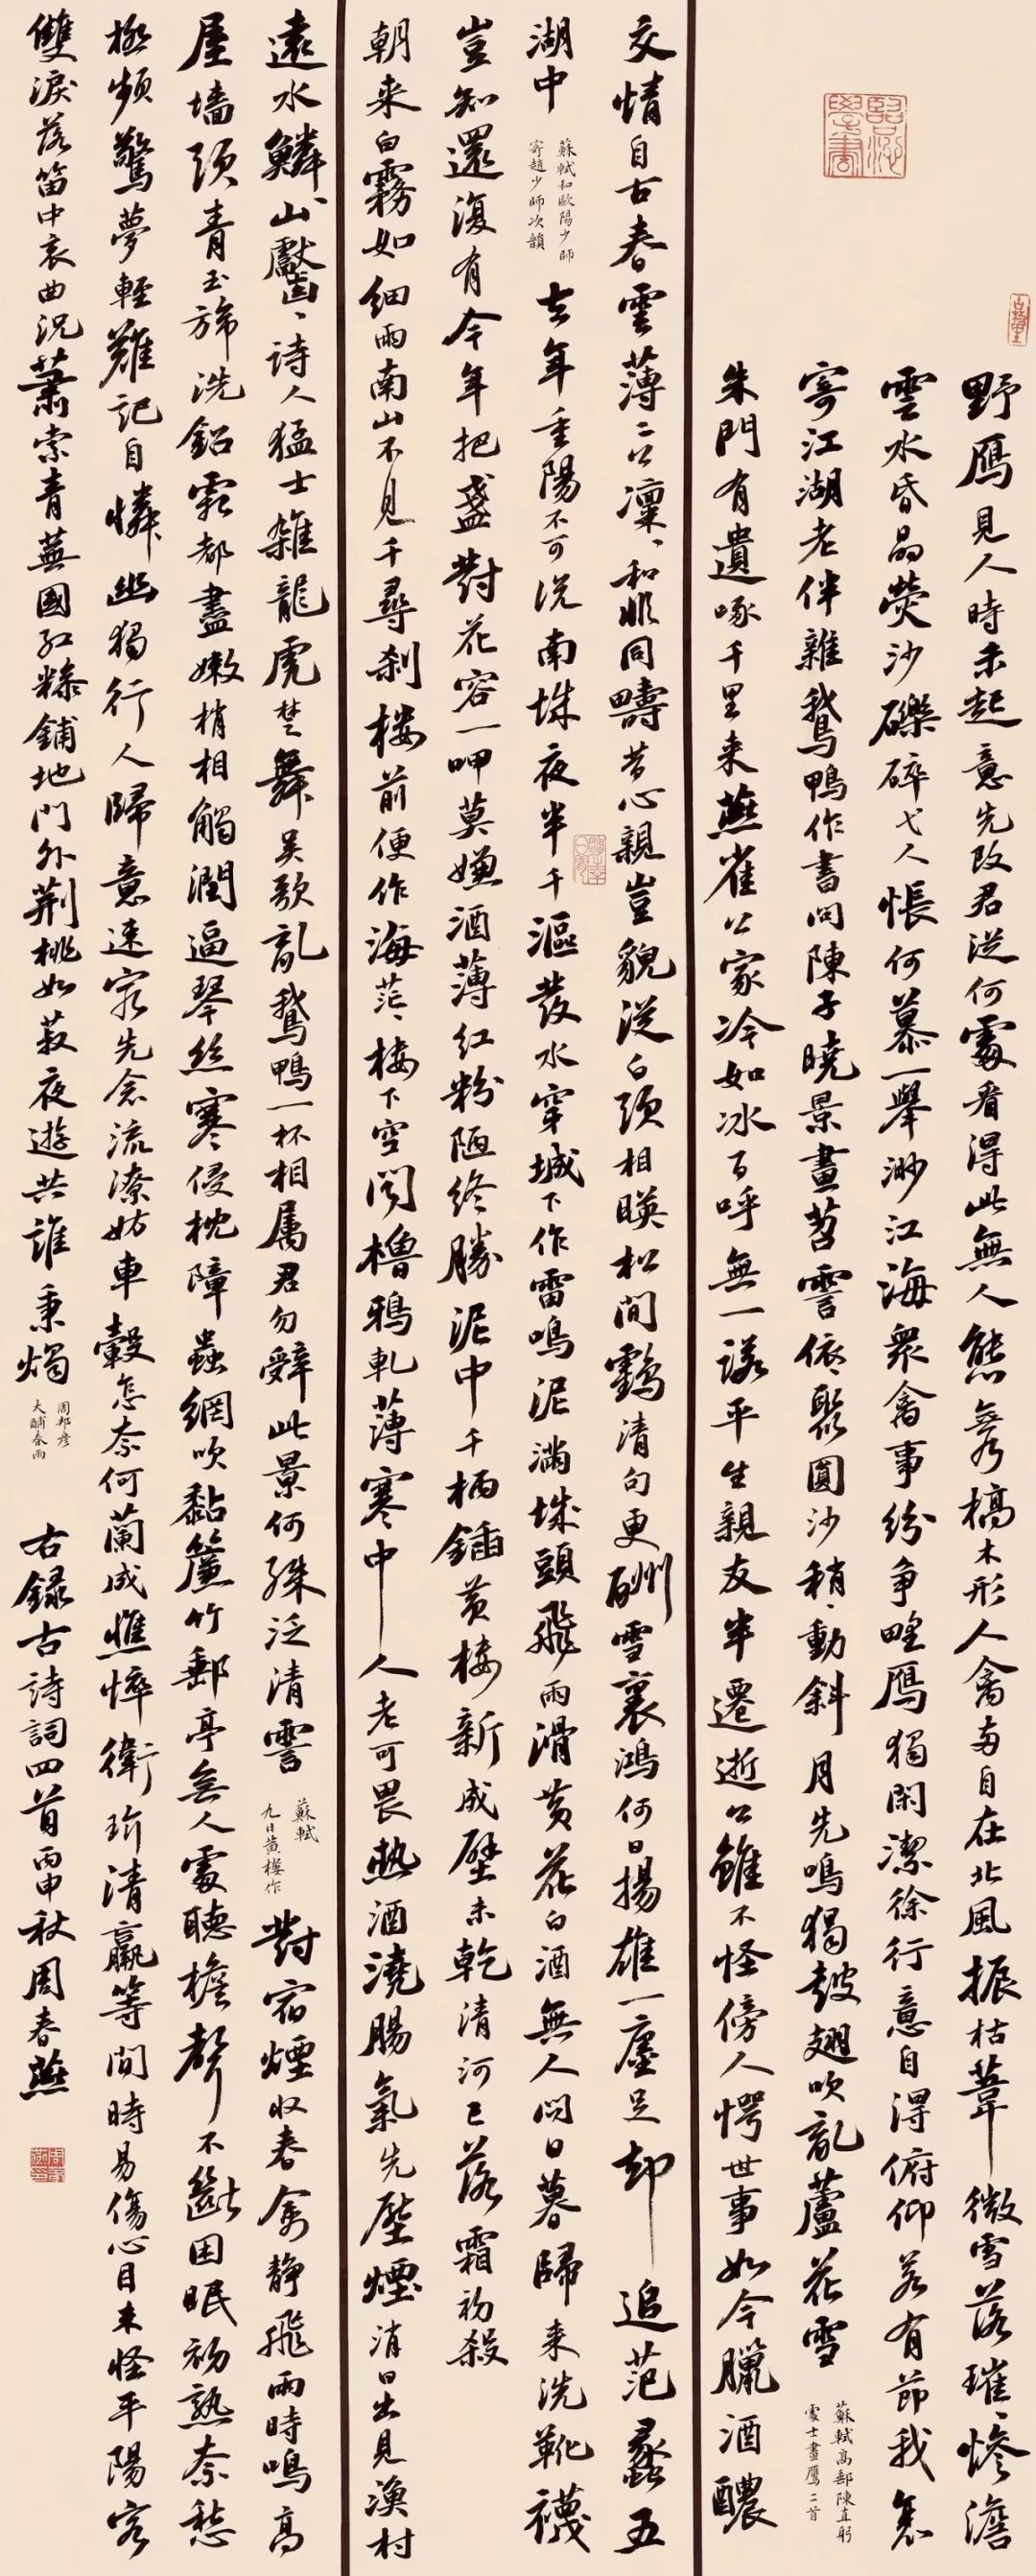 野鴈見人時未起意先改君從何處看得此無人態無乃槁木形人禽兩自在北風振枯葦微雪落璀〻慘澹
雲水昏晶熒沙礫碎弋人悵何慕一舉渺江海衆禽事紛爭野鴈獨閑潔徐行意自得俯仰若有節我衰
寄江湖老伴雜鵝鴨作書問陳子曉景畫苕霅依〻聚圓沙稍〻動斜月先鳴獨鼓翅吹亂蘆花雪
蘇軾高郵陳直躬
處士畫鴈二首
朱門有遺啄千里來燕雀公家冷如冰百呼無一諾平生親友半遷逝公雖不怪傍人愕世事如今臘酒醲
交情自古春雲薄二公凜〻和非同疇昔心親豈貌從白須相映松間鶴清句更酬雪裏鴻何日揚雄一廛足却追范蠡五
湖中
蘇軾和歐陽少師
寄趙少師次韻
去年重陽不可說南城夜半千漚發水穿城下作雷鳴泥滿城頭飛雨滑黃花白酒無人問日暮歸來洗靴襪
豈知還復有今年把盞對花容一呷莫嫌酒薄紅粉陋終勝泥中千柄鍤黃樓新成壁未乾清河已落霜初殺
朝來白霧如細雨南山不見千尋剎樓前便作海茫〻樓下空聞櫓鴉軋薄寒中人老可畏熱酒澆腸氣先壓煙消日出見漁村
遠水鱗〻山齾〻詩人猛士雜龍虎楚舞吳歌亂鵝鴨一杯相屬君勿辭此景何殊泛清霅
蘇軾
九日黃樓作
對宿煙收春禽靜飛雨時鳴高
屋墻頭青玉旆洗鉛霜都盡嫩梢相觸潤逼琴絲寒侵枕障蟲網吹黏簾竹郵亭無人處聽檐聲不斷困眠初熟奈愁
極頻驚夢輕難記自憐幽獨行人歸意速最先念流潦妨車轂怎奈何蘭成憔悴衛玠清羸等閒時易傷心目未怪平陽客
雙淚落笛中哀曲況蕭索青蕪國紅糝鋪地門外荊桃如菽夜遊共誰秉燭
周邦彥
大酺春雨
右錄古詩詞四首丙申秋周春燕